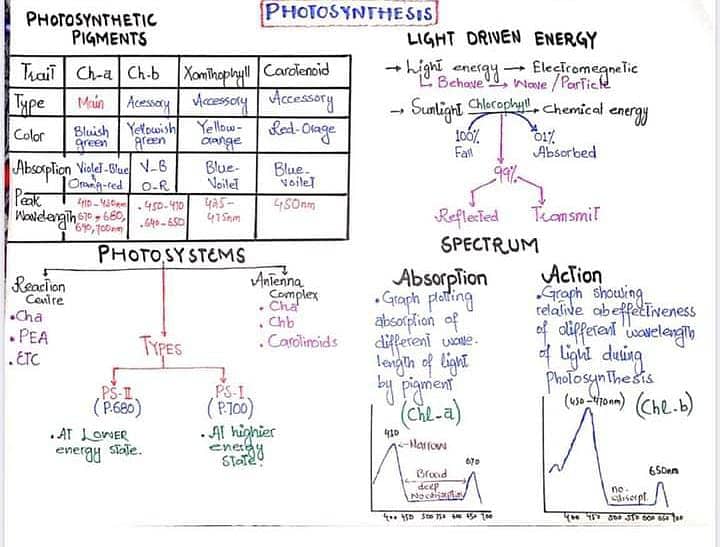 PHOTOSYNTHESIS
PHOTOSYNTHETIC
PIGMENTS
Trait Ch-a Ch-b Xanthophyll Carotenoid
Type Main Acessory Accessory Accessory
Color Bluish green Yellowish green Yellow-orange Red-Orage
Absorption Violet-Blue Orang-red V-B O-R Blue-Voilet Blue-Voilet
Peak Wavelength 410-430nm 670, 680, 690, 700nm 450-470 640-650 425-475nm 450nm
LIGHT DRIVEN ENERGY
→ Light energy → Electromegnetic
Behave → Wave/Particle
→ Sunlight Chlorophyll → Chemical energy
100% Fall
01% Absorbed
99%
Reflected Transmit
PHOTOSYSTEMS
Reaction
Centre
• Cha
• PEA
• ETC
Antenna
Complex
• Cha
• Chb
• Carotinoids
TYPES
PS-II
(P.680)
• AT LOWER
energy state.
PS-I
(P.700)
• AT highier
energy
state.
SPECTRUM
Absorption
• Graph plotting
absorption of
different wave-
length of light
by pigment
(Chl-a)
410
Narrow
Broad
deep
No absorption
670
400 450 500 550 600 650 700
Action
• Graph showing
relative ab effectiveness
of different wavelength
of light during
Photosynthesis
(430-470nm) (Chl-b)
650nm
no
absorpt.
400 450 500 550 600 650 700